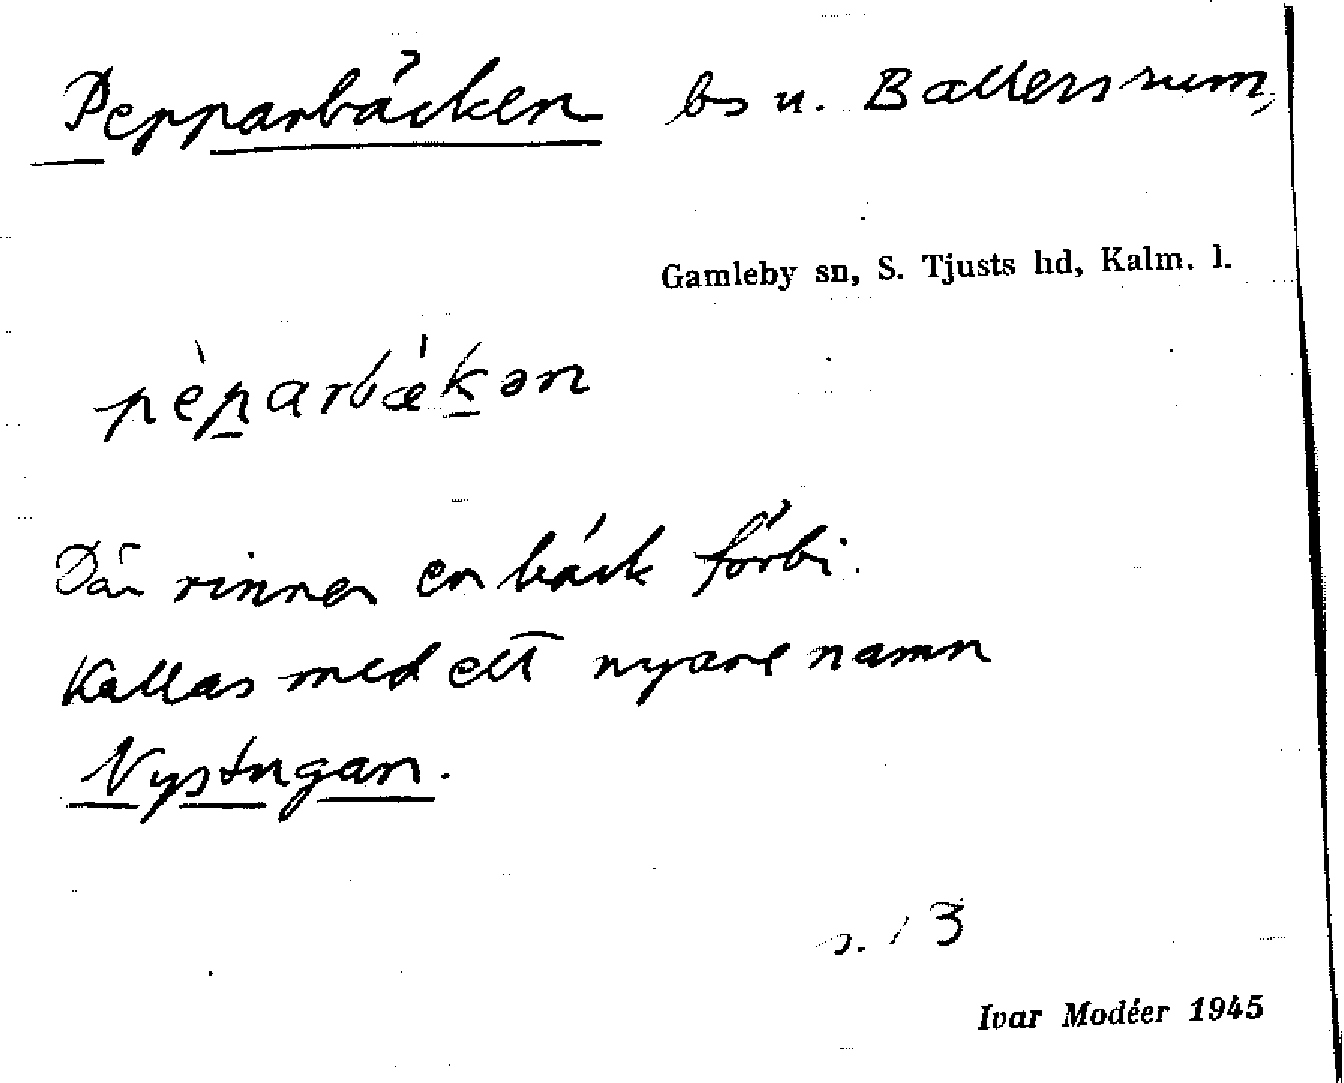 Pepparbäcken bs u. Ballersrum,
Gamleby sn, S. Tjusts hd, Kalm. l.
pèparbækən
Där rinner en bäck förbi.
Kallas med ett nyare namn
Nystugan.
s. 13
Ivar Modéer 1945